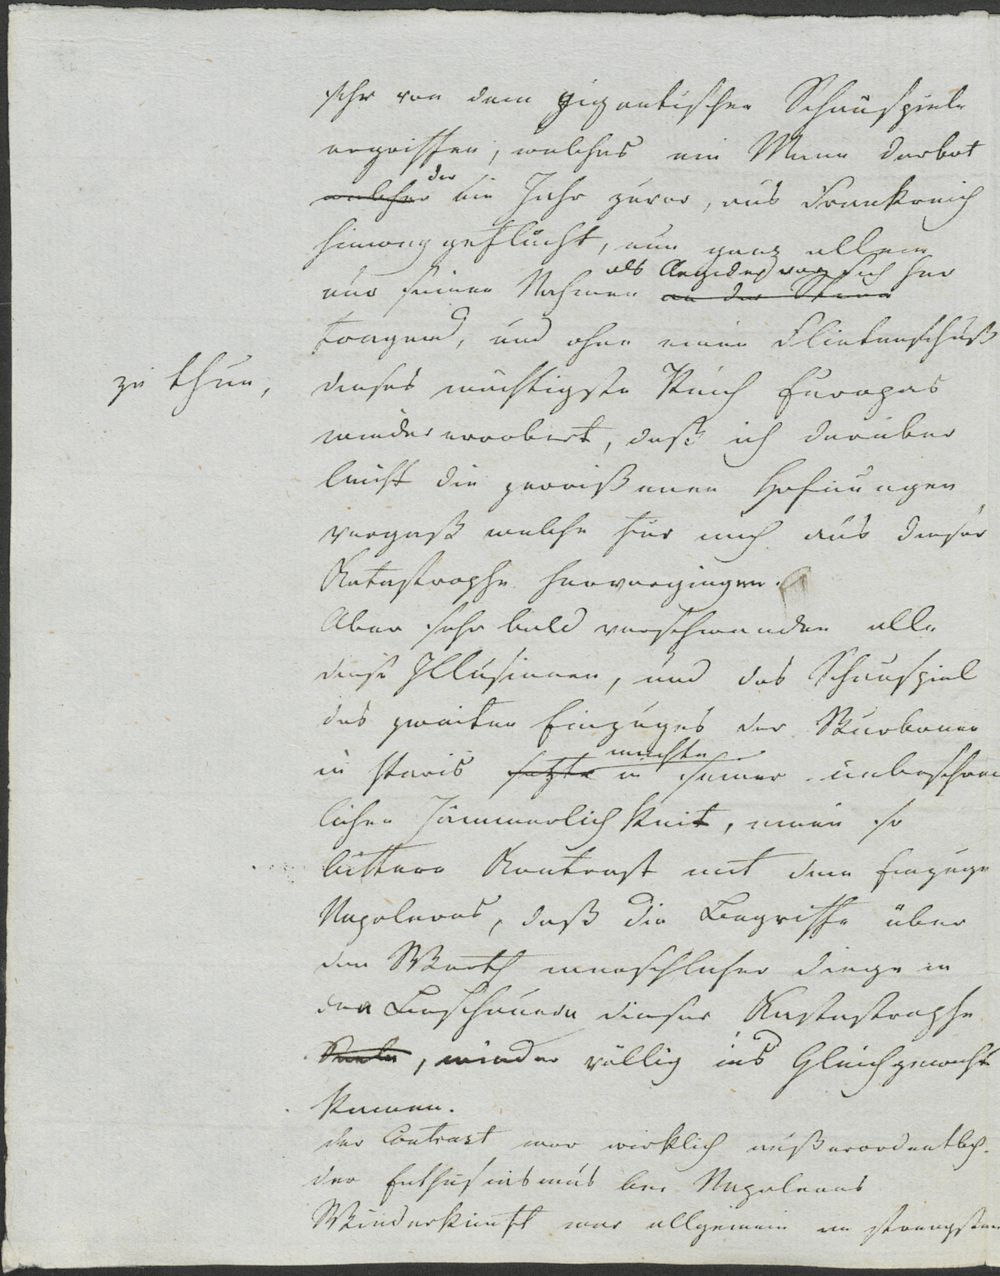 sehr von dem gigantischen Schauspiele
ergriffen, welches ein Mann darbot
welcher der ein Jahr zuvor, aus Frankreich
hinweg geflücht, nun ganz allein
nur seinen Nahmen an der Stirne als Aegide vor sich her
tragend, und ohne einen Flintenschuß
zu thun,
dieses mächtigste Reich Europas
wiedererobert, daß ich darüber
leicht die zerrißenen Hofnungen
vergaß welche für mich aus dieser
Katastrophe hervorgiengen.
Aber sehr bald verschwanden alle
diese Illusionen, und das Schauspiel
des zweiten Einzuges der Bourbonen
in Paris setzte machte in seiner unbeschreib
lichen Jämmerlichkeit, einen so
bittern Kontrast mit dem Einzuge
Napoleons, daß die Begriffe über
den Werth menschlicher Dinge in
den Beschauern dieser Katastrophe
Seele, wieder völlig ins Gleichgewicht
kamen.
der Contrast war wirklich außerordentlich.
der Enthusiasmus bei Napoleons
Wiederkunft war allgemein im strengsten